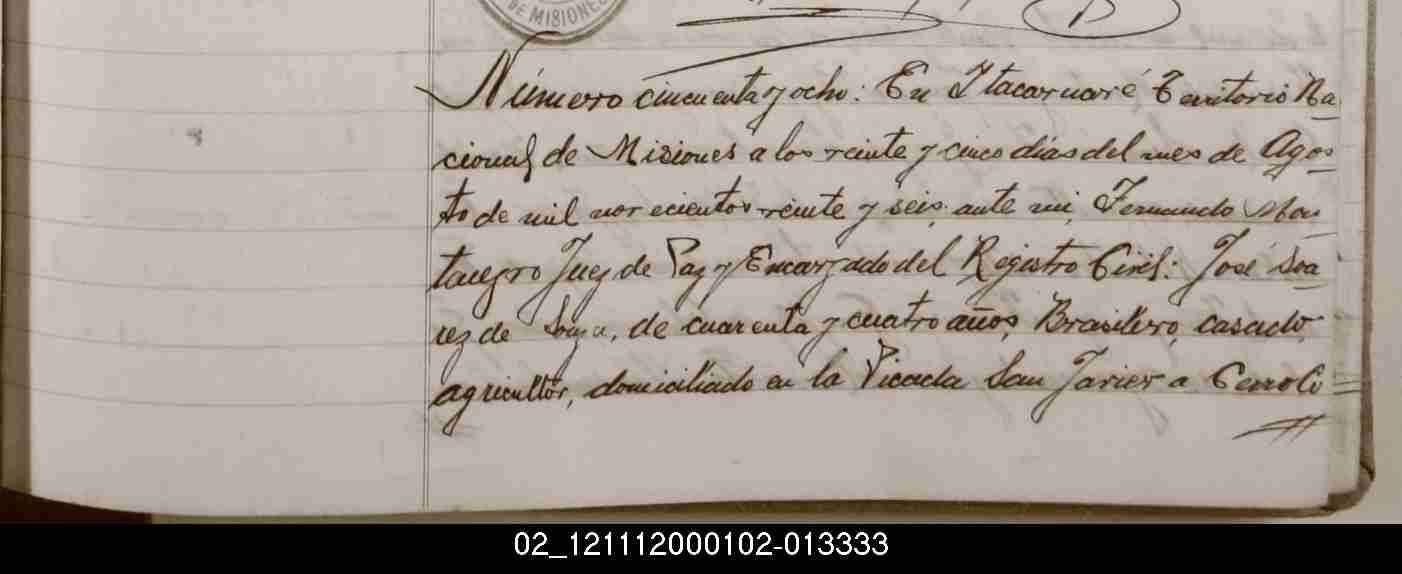 DE MISIONES
Número cincuenta y ocho: En Itacaruaré Territorio Na
cional de Misiones a los veinte y cinco días del mes de Agos
to de mil novecientos veinte y seis, ante mi, Fernando Mon
tenegro Juez de Paz y Encargado del Registro Civil: José Soa
rez de Souza, de cuarenta y cuatro años, Brasilero, casado,
agricultor, domiciliado en la Picada San Javier a Cerro Co
02_121112000102-013333